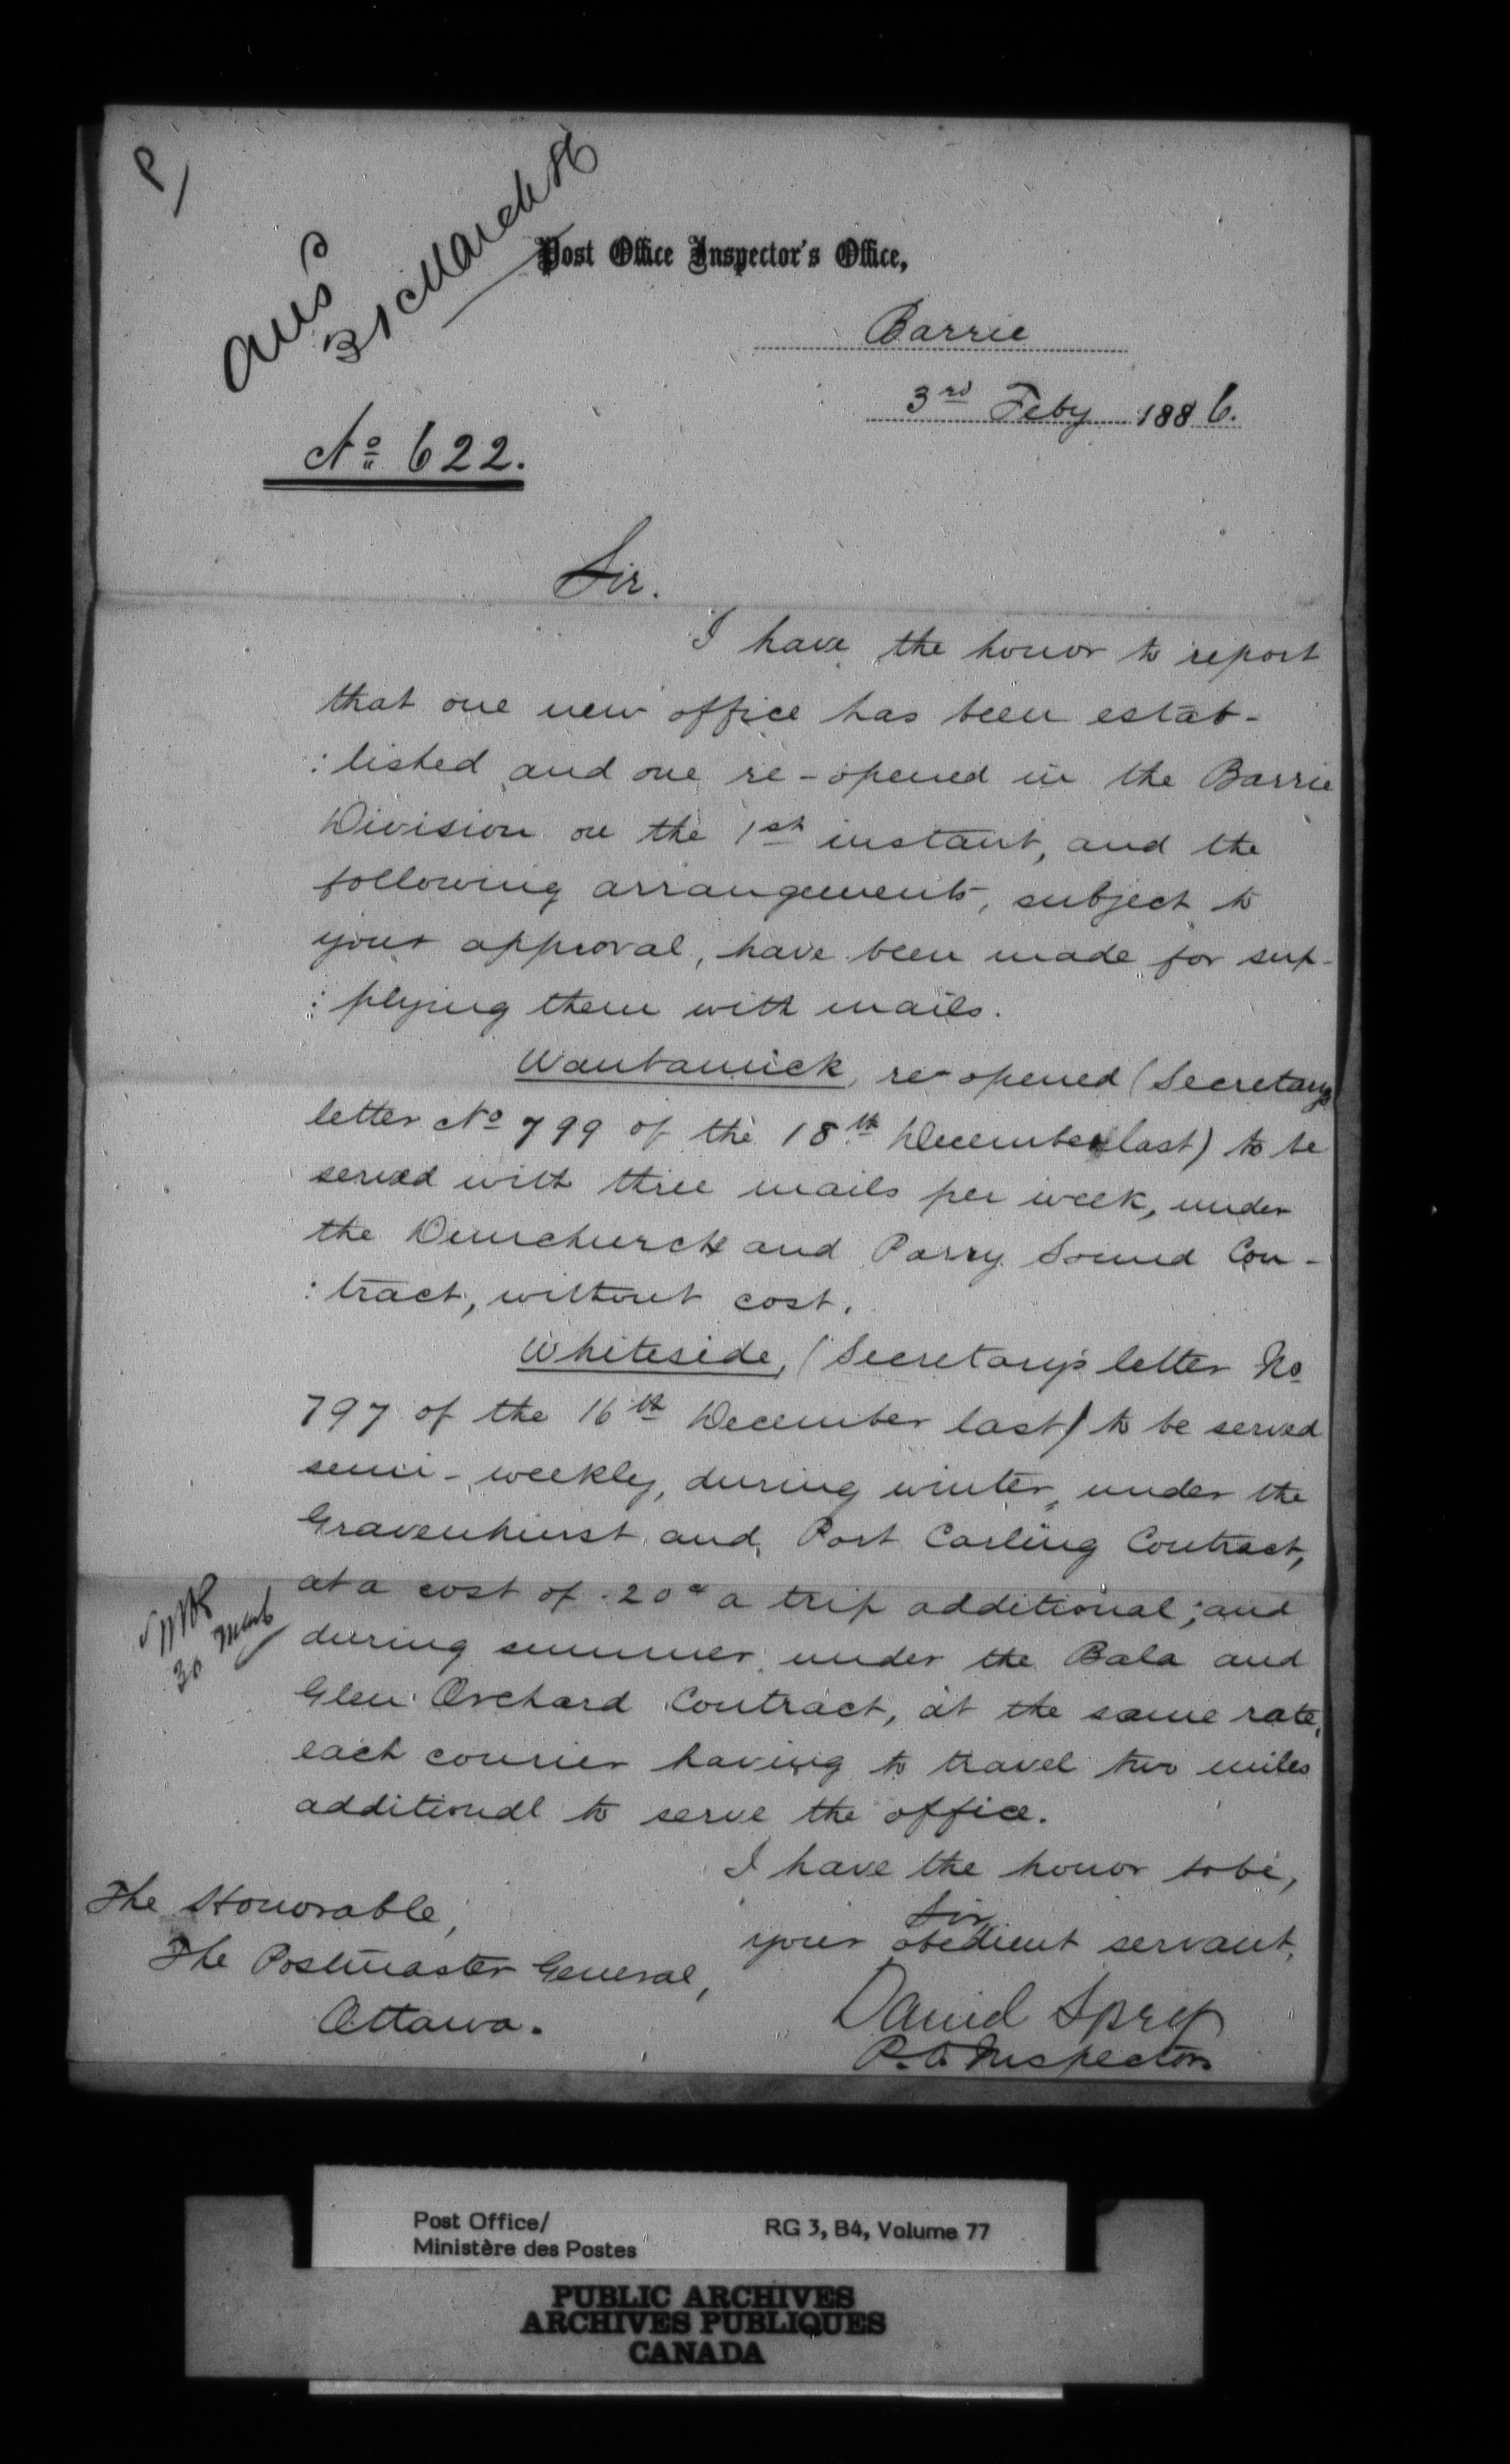 P/
Ans
31 March 86
Post Office Inspector's Office,
Barrie
3rd Feby 1886.
No 622.
Sir.
I have the honor to report
that one new office has been estab-
:lished and one re-opened in the Barrie
Division on the 1st instant, and the
following arrangements, subject to
your approval, have been made for sup-
:plying them with mails.
Waubamick, re-opened (Secretary's
letter No 799 of the 18th December last) to be
served with three mails per week, under
the Dunchurch and Parry Sound Con-
:tract, without cost.
Whiteside, (Secretary's letter No
797 of the 16th December last) to be served
semi-weekly, during winter, under the
Gravenhurst and Port Carling Contract,
at a cost of .20c a trip additional; and
during summer under the Bala and
Glen Orchard Contract, at the same rate,
each courier having to travel two miles
additional to serve the office.
30 March
I have the honor to be,
Sir,
your obedient servant,
David Spry
P.O. Inspector
The Honorable,
The Postmaster General,
Ottawa.
Post Office/
Ministère des Postes
RG 3, B4, Volume 77
PUBLIC ARCHIVES
ARCHIVES PUBLIQUES
CANADA